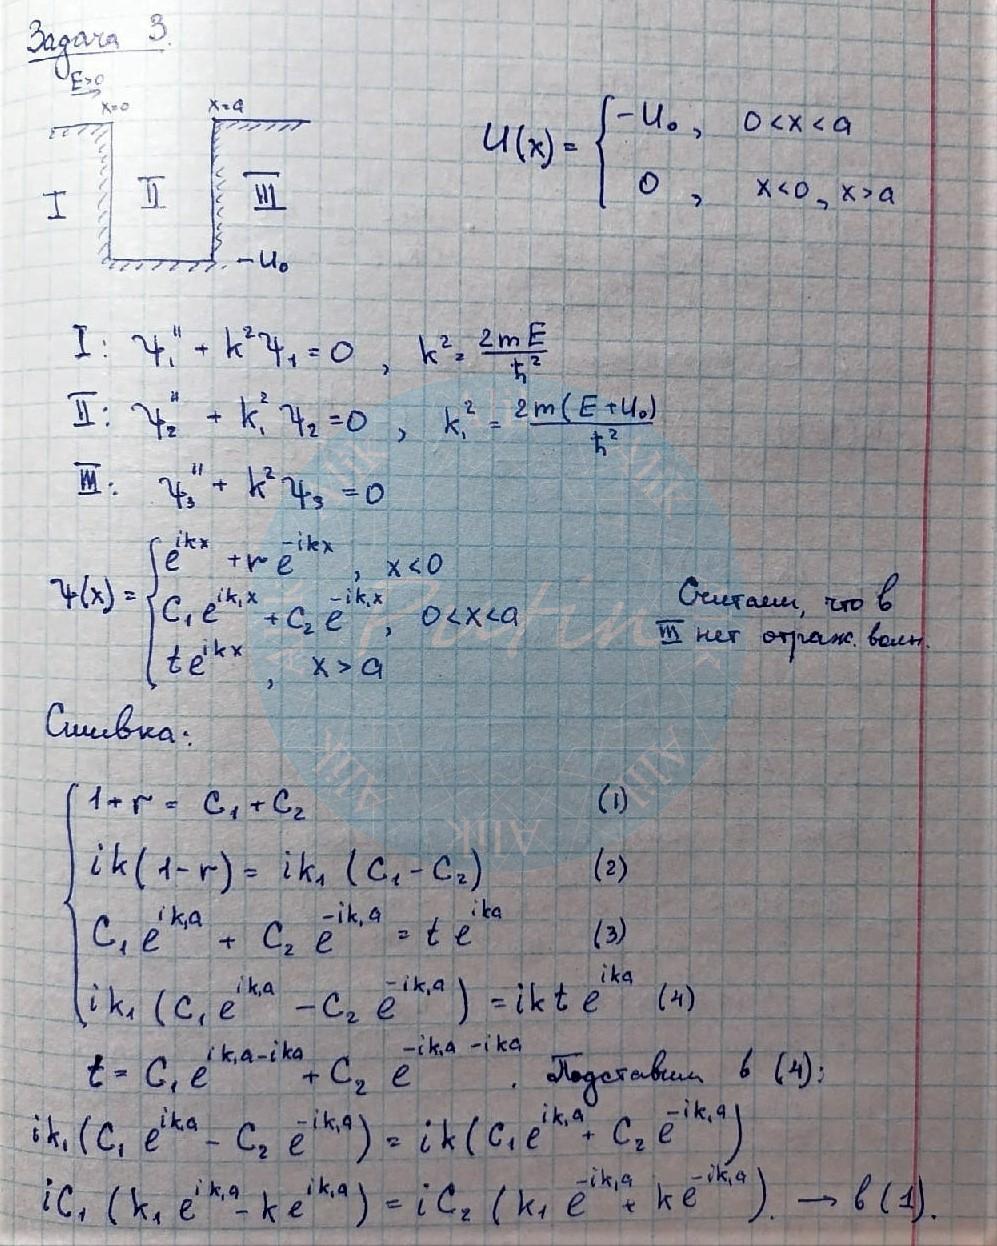 Задача 3.
E>0
x=0 x=a
I II III
-U₀
U(x) = { -U₀ , 0<x<a
0 , x<0, x>a
I: ψ₁'' + k²ψ₁ = 0 , k² = 2mE/ħ²
II: ψ₂'' + k₁²ψ₂ = 0 , k₁² = 2m(E+U₀)/ħ²
III: ψ₃'' + k²ψ₃ = 0
ψ(x) = { e^{ikx} + r e^{-ikx} , x<0
C₁e^{ik₁x} + C₂e^{-ik₁x} , 0<x<a
te^{ikx} , x>a
Считаем, что в
III нет отраж. волн.
Сшивка:
{ 1+r = C₁ + C₂ (1)
ik(1-r) = ik₁(C₁-C₂) (2)
C₁e^{ik₁a} + C₂e^{-ik₁a} = te^{ika} (3)
ik₁(C₁e^{ik₁a} - C₂e^{-ik₁a}) = ikte^{ika} (4)
t = C₁e^{ik₁a-ika} + C₂e^{-ik₁a-ika}. Подставим в (4):
ik₁(C₁e^{ik₁a} - C₂e^{-ik₁a}) = ik(C₁e^{ik₁a} + C₂e^{-ik₁a})
iC₁(k₁e^{ik₁a} - ke^{ik₁a}) = iC₂(k₁e^{-ik₁a} + ke^{-ik₁a}). → в (1).
Putin
Allik